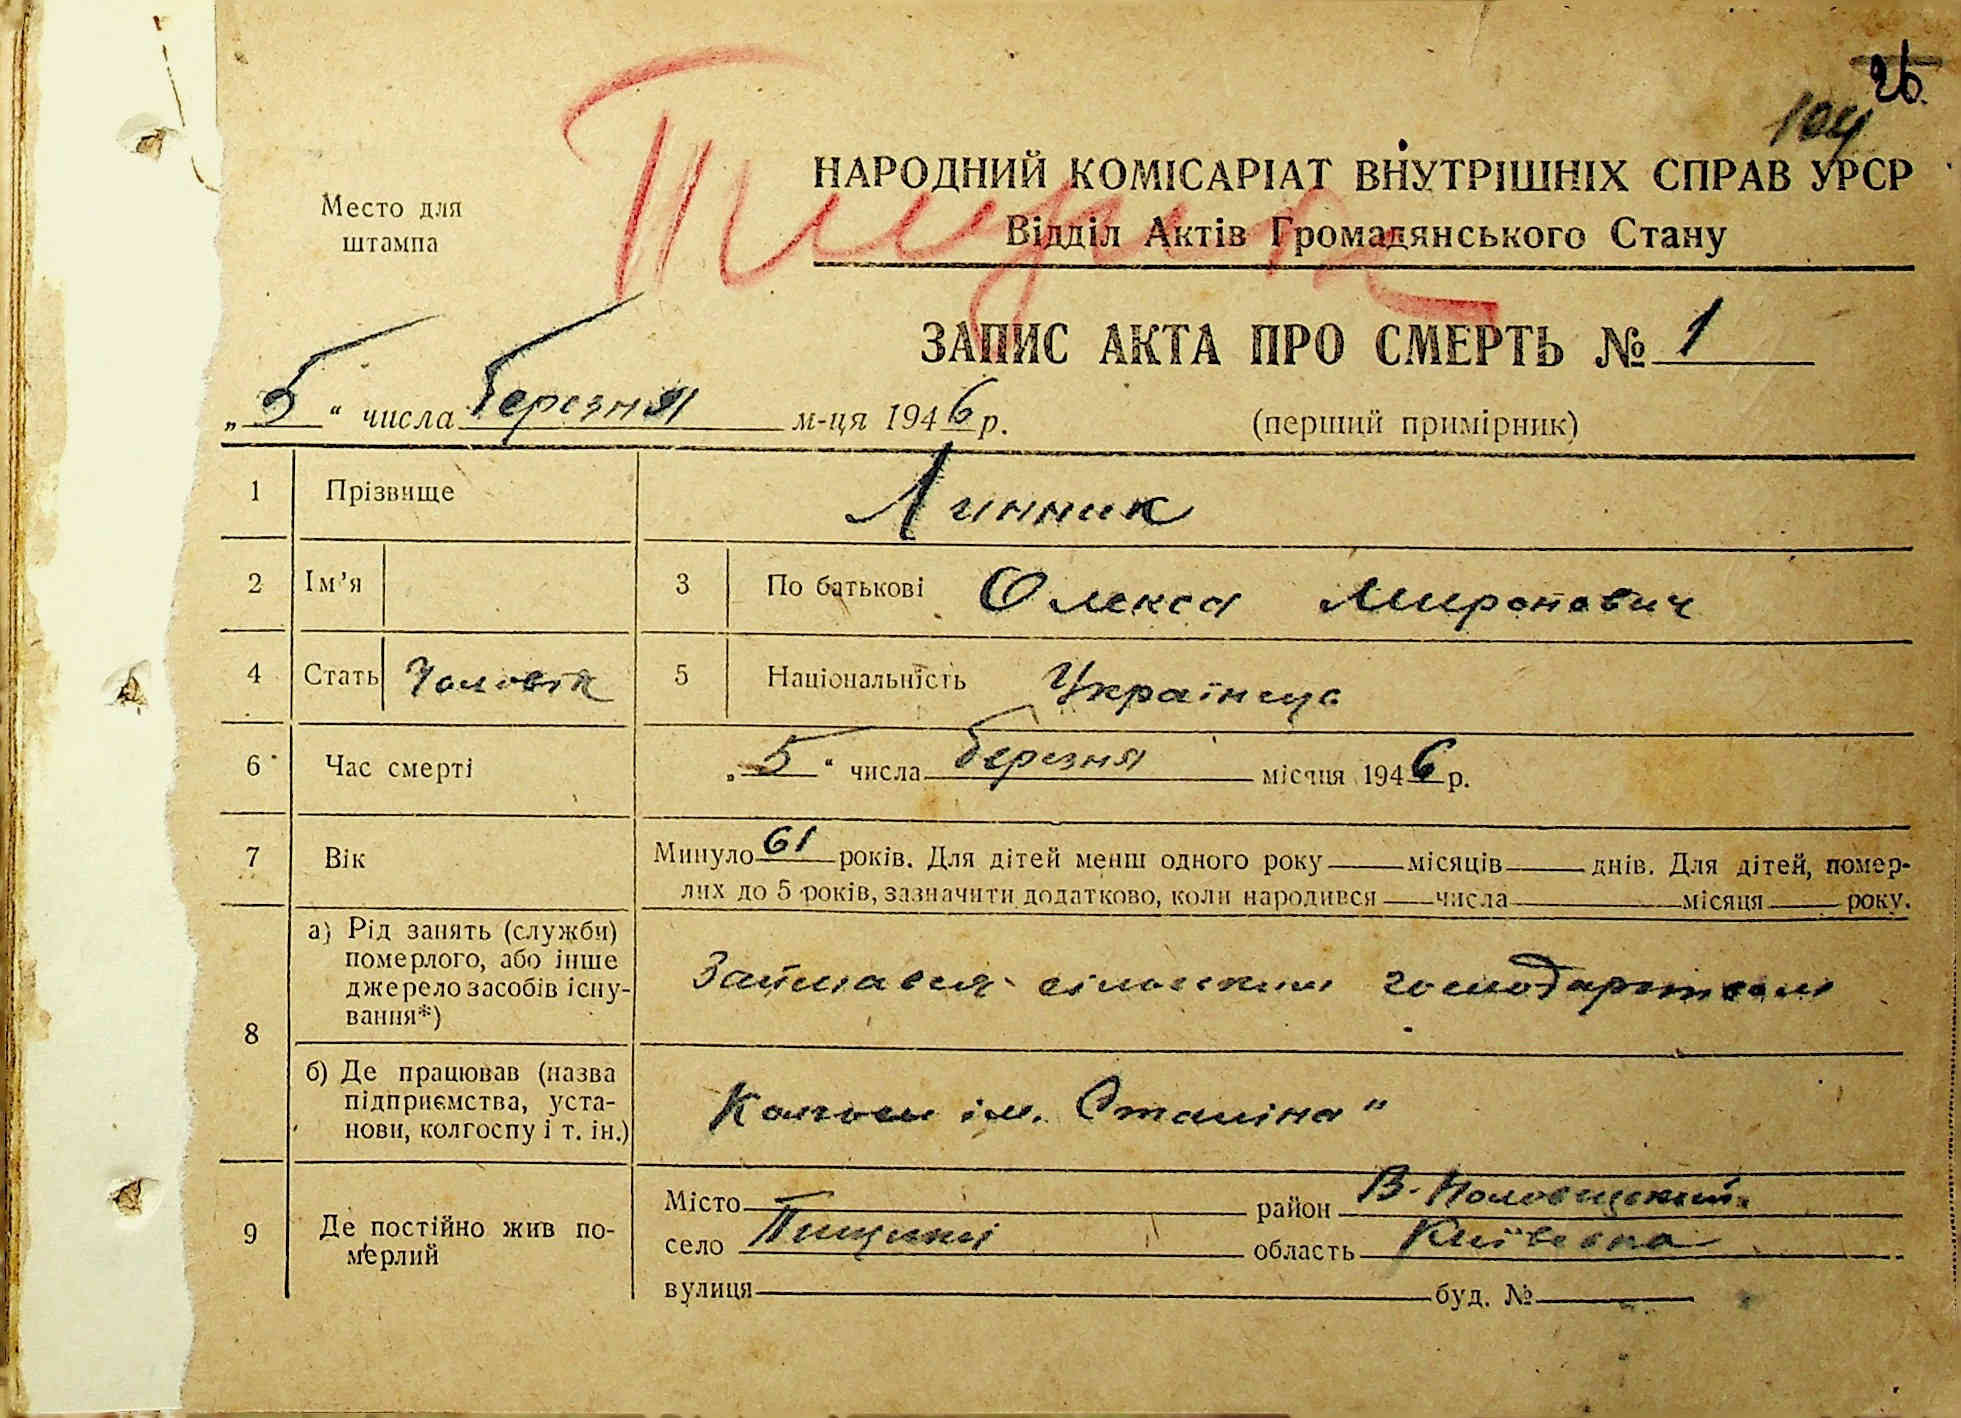 26.
104
НАРОДНИЙ КОМІСАРІАТ ВНУТРІШНІХ СПРАВ УРСР
Место для штампа
Відділ Актів Громадянського Стану
ЗАПИС АКТА ПРО СМЕРТЬ № 1
„5“ числа березня м-ця 1946 р.
(перший примірник)
1 Прізвище Линник
2 Ім’я 3 По батькові Олекса Миронович
4 Стать Чоловік 5 Національність Українець
6 Час смерті „5“ числа березня місяця 1946 р.
7 Вік Минуло 61 років. Для дітей менш одного року місяців днів. Для дітей, помер-
лих до 5 років, зазначити додатково, коли народився числа місяця року.
8 а) Рід занять (служби)
померлого, або інше
джерело засобів існу-
вання*)
Займався сільським господарством
б) Де працював (назва
підприємства, уста-
нови, колгоспу і т. ін.)
Колгосп ім. Сталіна"
9 Де постійно жив по-
мерлий
Місто район В-Половецький
село Пищики область Київська
вулиця буд. №